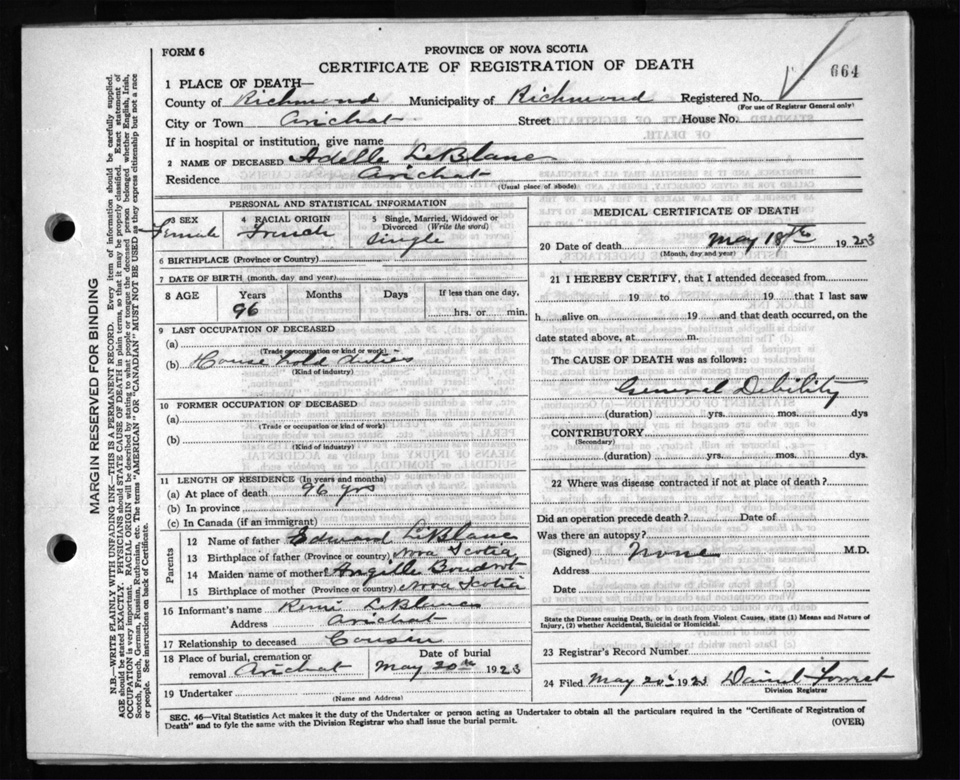 FORM 6
PROVINCE OF NOVA SCOTIA
CERTIFICATE OF REGISTRATION OF DEATH
664
1 PLACE OF DEATH—
County of Richmond Municipality of Richmond Registered No.
(For use of Registrar General only)
City or Town Arichat Street House No.
If in hospital or institution, give name
2 NAME OF DECEASED Adelle LeBlanc
Residence Arichat
(Usual place of abode)
PERSONAL AND STATISTICAL INFORMATION
3 SEX 4 RACIAL ORIGIN 5 Single, Married, Widowed or Divorced (Write the word)
Female French Single
6 BIRTHPLACE (Province or Country)
7 DATE OF BIRTH (month, day and year)
8 AGE Years Months Days If less than one day,
96 hrs. or min.
9 LAST OCCUPATION OF DECEASED
(a)
(Trade or occupation or kind or work)
(b) House hold duties
(Kind of industry)
10 FORMER OCCUPATION OF DECEASED
(a)
(Trade or occupation or kind of work)
(b)
(Kind of industry)
11 LENGTH OF RESIDENCE (In years and months)
(a) At place of death 96 yrs
(b) In province
(c) In Canada (if an immigrant)
Parents
12 Name of father Edward LeBlanc
13 Birthplace of father (Province or country) Nova Scotia
14 Maiden name of mother Angille Boudrot
15 Birthplace of mother (Province or country) Nova Scotia
16 Informant's name Remi LeBlanc
Address Arichat
17 Relationship to deceased Cousin
18 Place of burial, cremation or removal Arichat Date of burial May 20th 1923
19 Undertaker
(Name and Address)
MEDICAL CERTIFICATE OF DEATH
20 Date of death May 18th 1923
(Month, day and year)
21 I HEREBY CERTIFY, that I attended deceased from
19 to 19 that I last saw
h alive on 19 and that death occurred, on the
date stated above, at m.
The CAUSE OF DEATH was as follows:
General Debility
(duration) yrs. mos. dys
CONTRIBUTORY
(Secondary)
(duration) yrs. mos. dys.
22 Where was disease contracted if not at place of death?
Did an operation precede death? Date of
Was there an autopsy?
(Signed) None M.D.
Address
Date
State the Disease causing Death, or in death from Violent Causes, state (1) Means and Nature of
Injury, (2) whether Accidental, Suicidal or Homicidal.
23 Registrar's Record Number
24 Filed May 20th 1923 Daniel
Division Registrar
SEC. 46—Vital Statistics Act makes it the duty of the Undertaker or person acting as Undertaker to obtain all the particulars required in the "Certificate of Registration of
Death" and to fyle the same with the Division Registrar who shall issue the burial permit.
(OVER)
MARGIN RESERVED FOR BINDING
N.B—WRITE PLAINLY WITH UNFADING INK—THIS IS A PERMANENT RECORD. Every item of information should be carefully supplied.
AGE should be stated EXACTLY. PHYSICIANS should STATE CAUSE OF DEATH in plain terms, so that it may be properly classified. Exact statement of
OCCUPATION is very important. RACIAL ORIGIN will be described by stating to what people or tongue the deceased person belonged whether English, Irish,
Scotch, French, German, Russian, Ruthenian, etc. The terms "AMERICAN" OR "CANADIAN" MUST NOT BE USED as they express citizenship but not a race
or people. See instructions on back of Certificate.